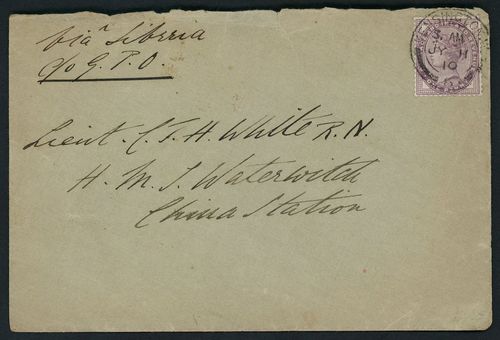 via Siberia
c/o G.P.O.
Lieut. C. J. H. White R.N.
H.M.S Waterwitch
China Station
3. AM
11
10